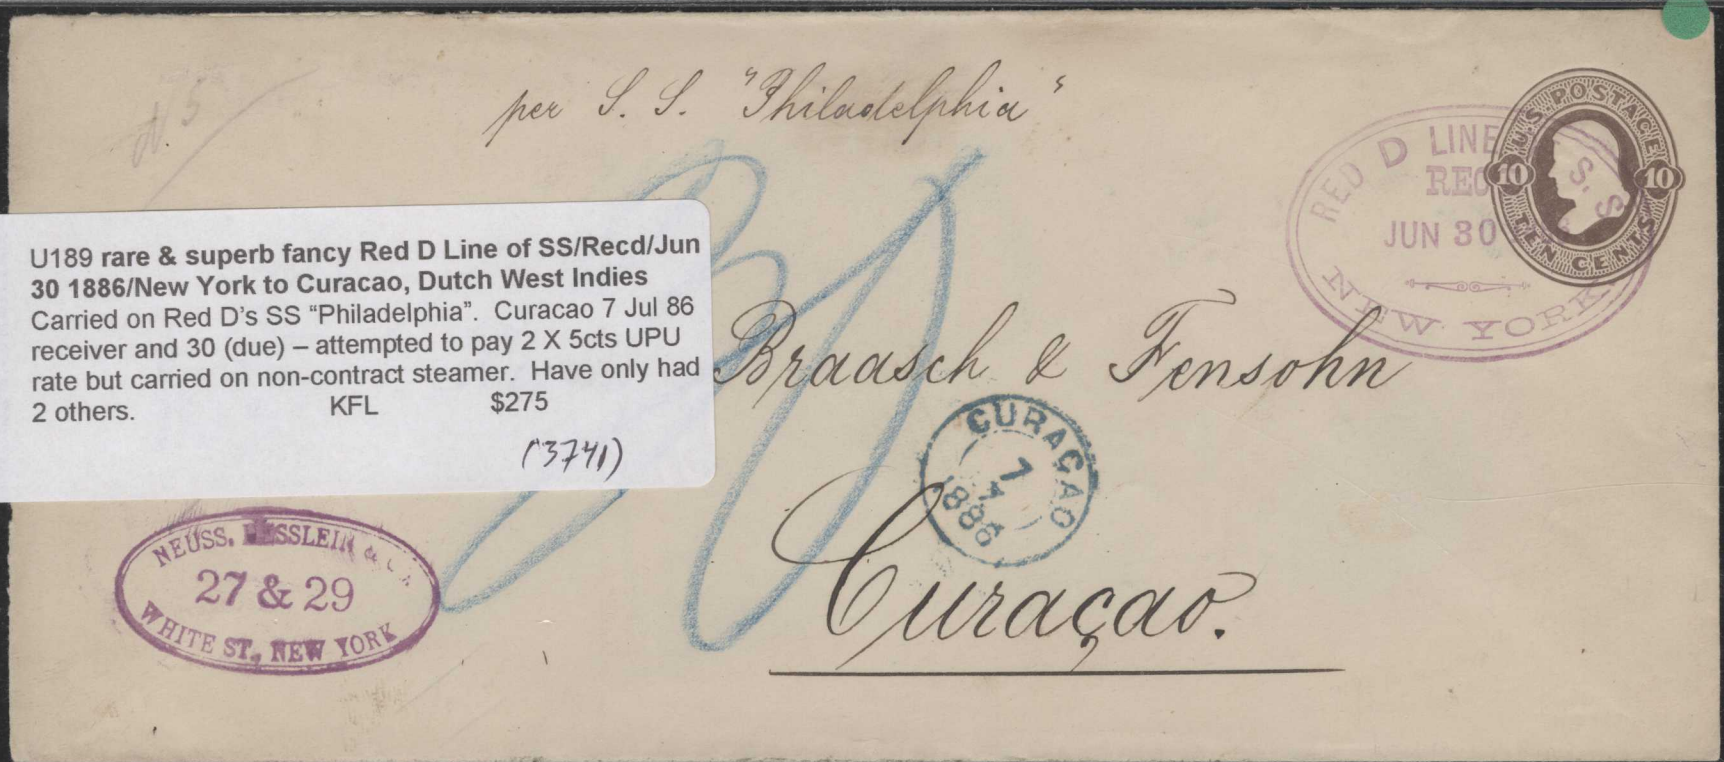 N 5
per S. S. "Philadelphia"
U.S. POSTAGE
10 10
TEN CENTS
RED D LINE S. S.
REC
JUN 30
NEW YORK
U189 rare & superb fancy Red D Line of SS/Recd/Jun
30 1886/New York to Curacao, Dutch West Indies
Carried on Red D's SS “Philadelphia”. Curacao 7 Jul 86
receiver and 30 (due) – attempted to pay 2 X 5cts UPU
rate but carried on non-contract steamer. Have only had
2 others. KFL $275
(3741)
30
Braasch & Fensohn
CURAÇAO
7
7
1886
Curaçao.
NEUSS, HESSLEIN & Co.
27 & 29
WHITE ST., NEW YORK